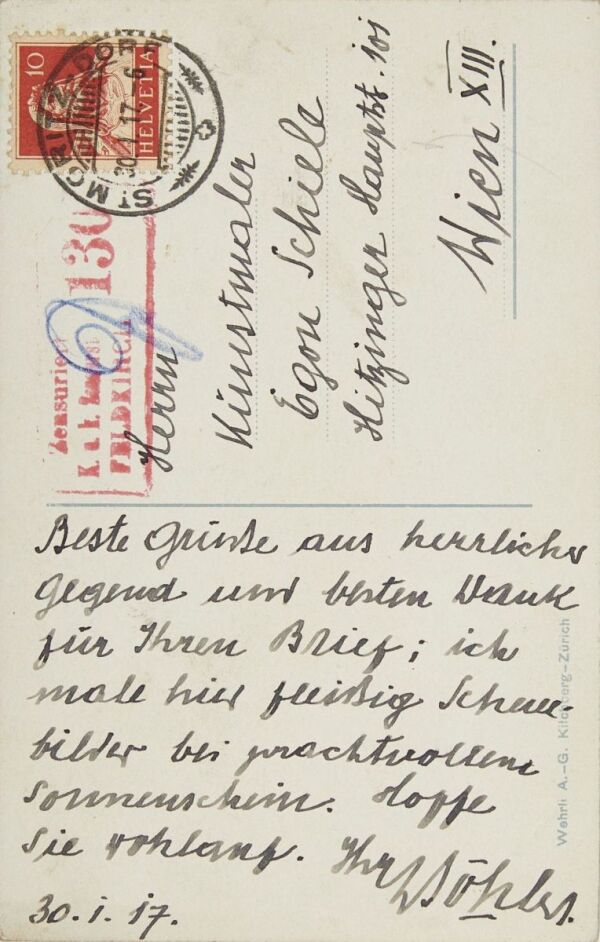 10
HELVETIA
ST. MORITZ-DORF
30.I.17.-6
130
Zensuriert
K. u. k.
FELDKIRCH
Herrn
Kunstmaler
Egon Schiele
Hitzinger Hauptst. 101
Wien XIII.
Beste Grüße aus herrlicher
Gegend und besten Dank
für Ihren Brief; ich
male hier fleißig Schnee-
bilder bei prachtvollem
Sonnenschein. Hoffe
Sie wohlauf. Ihr Böhler.
30.1.17.
Wehrli A.-G. Kilchberg-Zürich